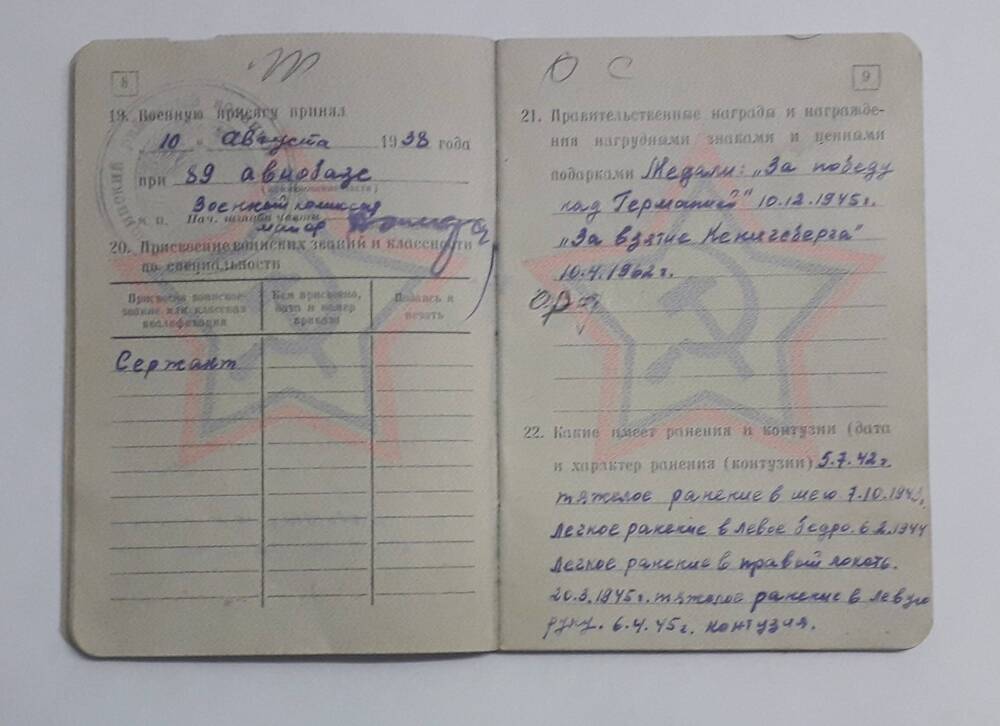 8
19. Военную присягу принял
10 " августа 1938 года
при 89 авиобазе
(наименование части)
Военный комиссар
м. п. Нач. штаба части
майор
20. Присвоение воинских званий и классности
по специальности
Присвоено воинское звание или классная квалификация
Кем присвоено, дата и номер приказа
Подпись и печать
Сержант
О С
9
21. Правительственные награды и награжде-
ния нагрудными знаками и ценными
подарками Медали: „За победу
над Германией" 10.12.1945г.
„За взятие Кенигсберга"
10.4.1962г.
22. Какие имеет ранения и контузии (дата
и характер ранения (контузии) 5.7.42г.
тяжелое ранение в шею 7.10.1943.
легкое ранение в левое бедро. 6.2.1944
легкое ранение в правый локоть.
20.3.1945г. тяжелое ранение в левую
руку. 6.4.45г. контузия.